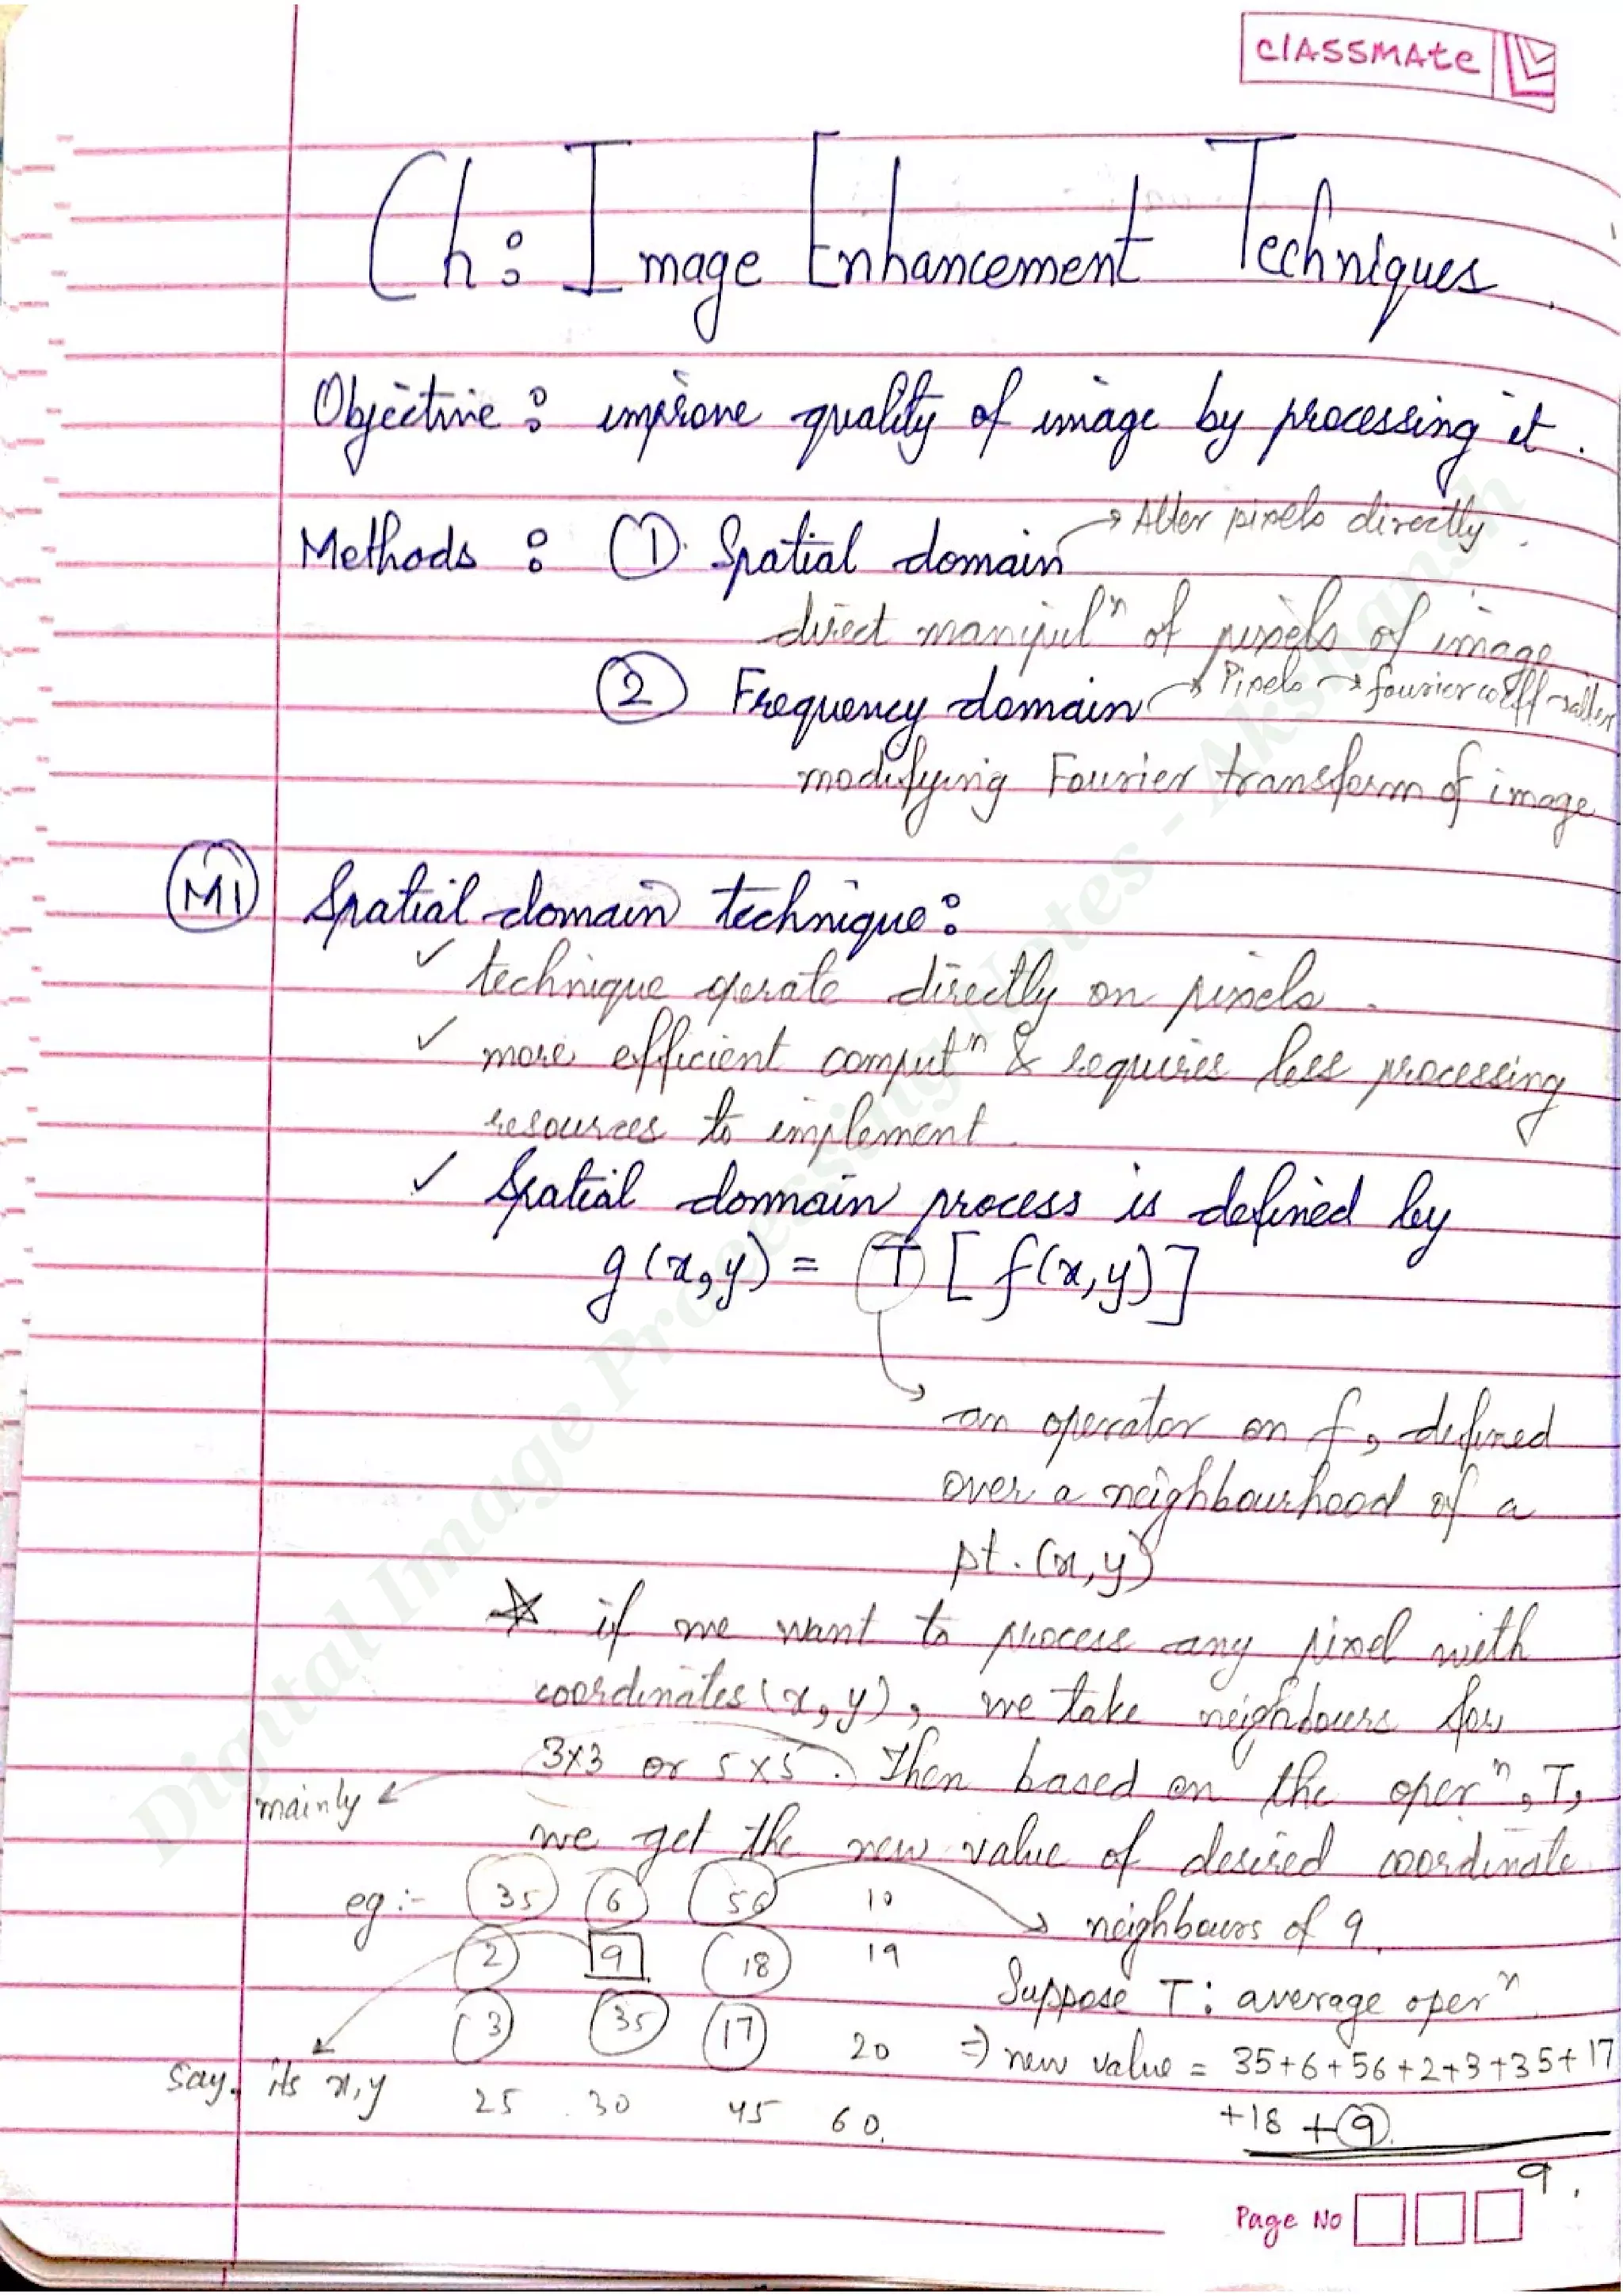 classmate
Ch: Image Enhancement Techniques
Objective: improve quality of image by processing it.
Methods: ① Spatial domain → Alter pixels directly
direct manipulⁿ of pixels of image
② Frequency domain → Pixels → fourier coeff → alter
modifying Fourier transform of image
M1 Spatial domain technique:
✓ technique operate directly on pixels.
✓ more efficient computⁿ & requires less processing
resources to implement.
✓ Spatial domain process is defined by
g(x,y) = T [f(x,y)]
→ an operator on f, defined
over a neighbourhood of a
pt. (x,y)
☆ if we want to process any pixel with
coordinates (x,y), we take neighbours for
3x3 or 5x5. Then based on the operⁿ, T,
mainly
we get the new value of desired coordinate
eg:- 35 6 56 10
→ neighbours of 9.
2 9 18 19
Suppose T: average operⁿ.
3 35 17 20
⇒ new value = 35+6+56+2+3+35+17
Say, its x,y
25 30 45 60.
+18 +9
9.
Page No
Digital Image Processing Notes - Akshansh